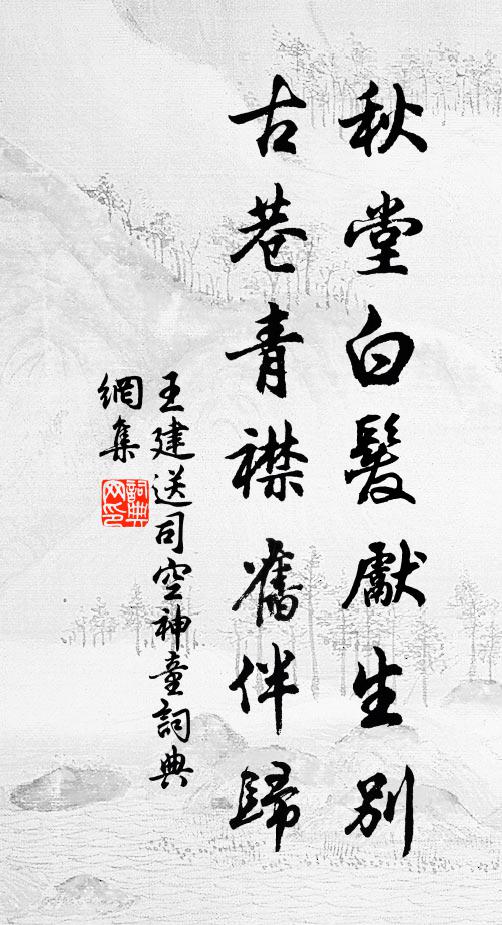 秋堂白髮獻生別
古巷青襟舊伴歸
王建送司空神童詞典
網集
詞典
网印